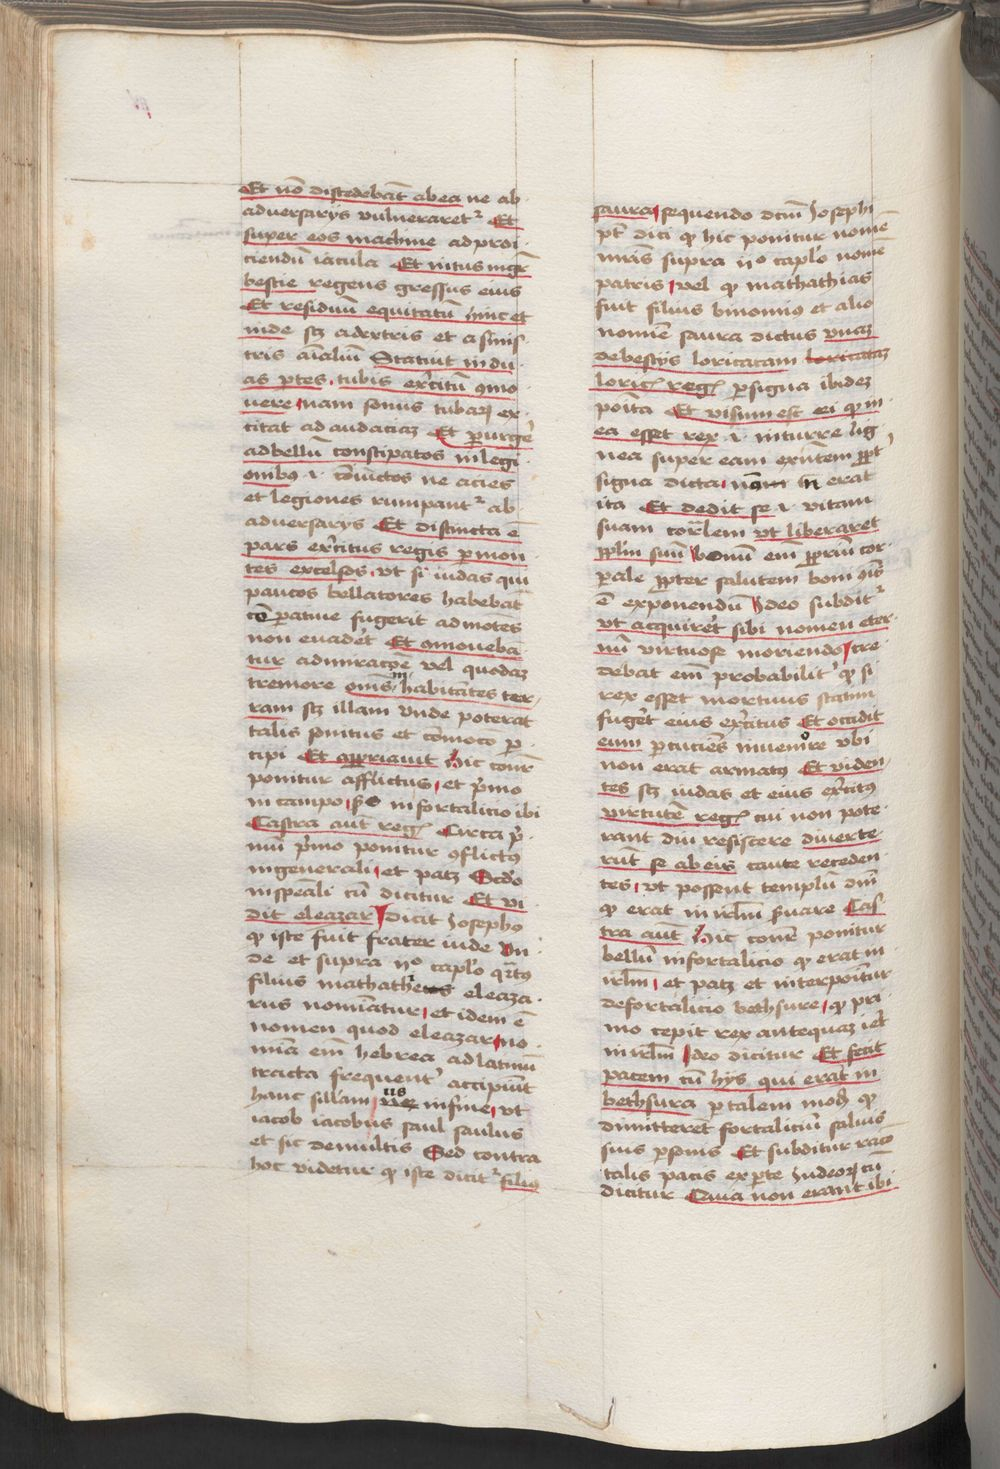 Et nō discedebāt ab ea ne ab
adversarijs vulneraret᷑ Et
super eos machine ad proi
ciendū iacula Et intus mgr̄
bestie regens gressus eius
Et residuū equitatū hinc et
inde sꝫ a dextris et a sinis
tris aīaliū Statuit in du
as ptes tubis exꝰcitū ꝯmo
vere nam sonus tubaꝝ ex
citat ad audaciaꝫ Et ꝑurgē
ad bellū constipatos in legi
onibꝰ .i. cōiūctos ne acies
et legiones rumpant᷑ ab
adversarijs Et distincta ē
pars exꝰcitus regis ꝑ mon
tes excelsos vt si iudas qui
paucos bellatores habebat
cōparative fugerit ad mōtes
non evadet Et ꝯmoveba
tur admiracōe vel quodaꝫ
tremore om̄s inhabitātes ter
ram sꝫ illam vnde poterat
talis sonitus et cōmocō ꝑ
cipi Et appropiavit Hic conꝰr
ponitur afflictus et pꝰmo
in campo 2º in fortalicio ibi
Castra aut᷑ regꝭ Circa pꝰ
mū pꝰmo ponitur ꝯflictꝰ
in generali et patꝫ Scd̄o
in speāli cū dicitur Et vi
dit eleazar Dicit Josephꝰ
ꝙ iste fuit frater iude vn
de et supra ijº cap̄lo qꝰrtꝰ
filius mathathie eleaza
rus nominatur et idem ē
nomen quod eleazar no
mīa em̄ hebrea ad latinū
tracta frequentꝰ accipiūt
hanc sillam us in fine vt
iacob iacobus saul saulus
et sic de multis Sed contra
hoc videtur ꝙ iste dicit᷑ filiꝰ
saura sequendo dcm̄ Josephi
pt̄ dici ꝙ hic ponitur nomē
mr̄is supra ijº cap̄lo nomē
patris vel ꝙ mathathias
fuit filius binomiꝰ et alio
nomīe saura dictus vnaꝫ
de bestijs loricatam loricataꝫ
loricꝭ regꝭ ꝑ signa ibideꝫ
poīta Et visum est ei ꝙ in
ea esset rex .i. in turre lig
nea super eam exn̄tem ꝓpt̄
signa dicta non erat
ita Et dedit se .i. vitam
suam corꝑalem vt liberaret
ppl̄m suū bonū em̄ ꝓpriū cor
ꝑale ꝓpter salutem boni ꝯīs
ē exponendū Ideo subdit᷑
vt acquireret sibi nomen eter
nū virtuose moriendo cre
debat em̄ probabilitꝰ ꝙ si
rex esset mortuus statim
fugeret eius exꝰcitus Et occidit
eum ꝑcuciēs in ventre vbi
non erat armatꝰ Et viden
tes sꝫ iudas et eius exꝰcitꝰ
virtutē regꝭ cui non pote
rant diu resistere diverte
rūt se ab eis caute receden
tes vt possent templū dn̄i
ꝙ erat in irl̄m servare Cas
tra aut᷑ Hic conꝰr ponitur
bellū in fortalicio ꝙ erat in
irl̄m et patꝫ et interponitur
de fortalicio bethsure ꝙ pri
mo cepit rex antequaꝫ iet̄
in irl̄m Ideo dicitur Et fecit
pacem cū hijs qui erāt in
bethsura ꝑ talem modū ꝙ
dimitteret fortaliciū salvis
suis ꝑsonis Et subditur racō
talis pacis ex ꝑte Iudeoꝝ cū
dicitur Quia non erant ibi